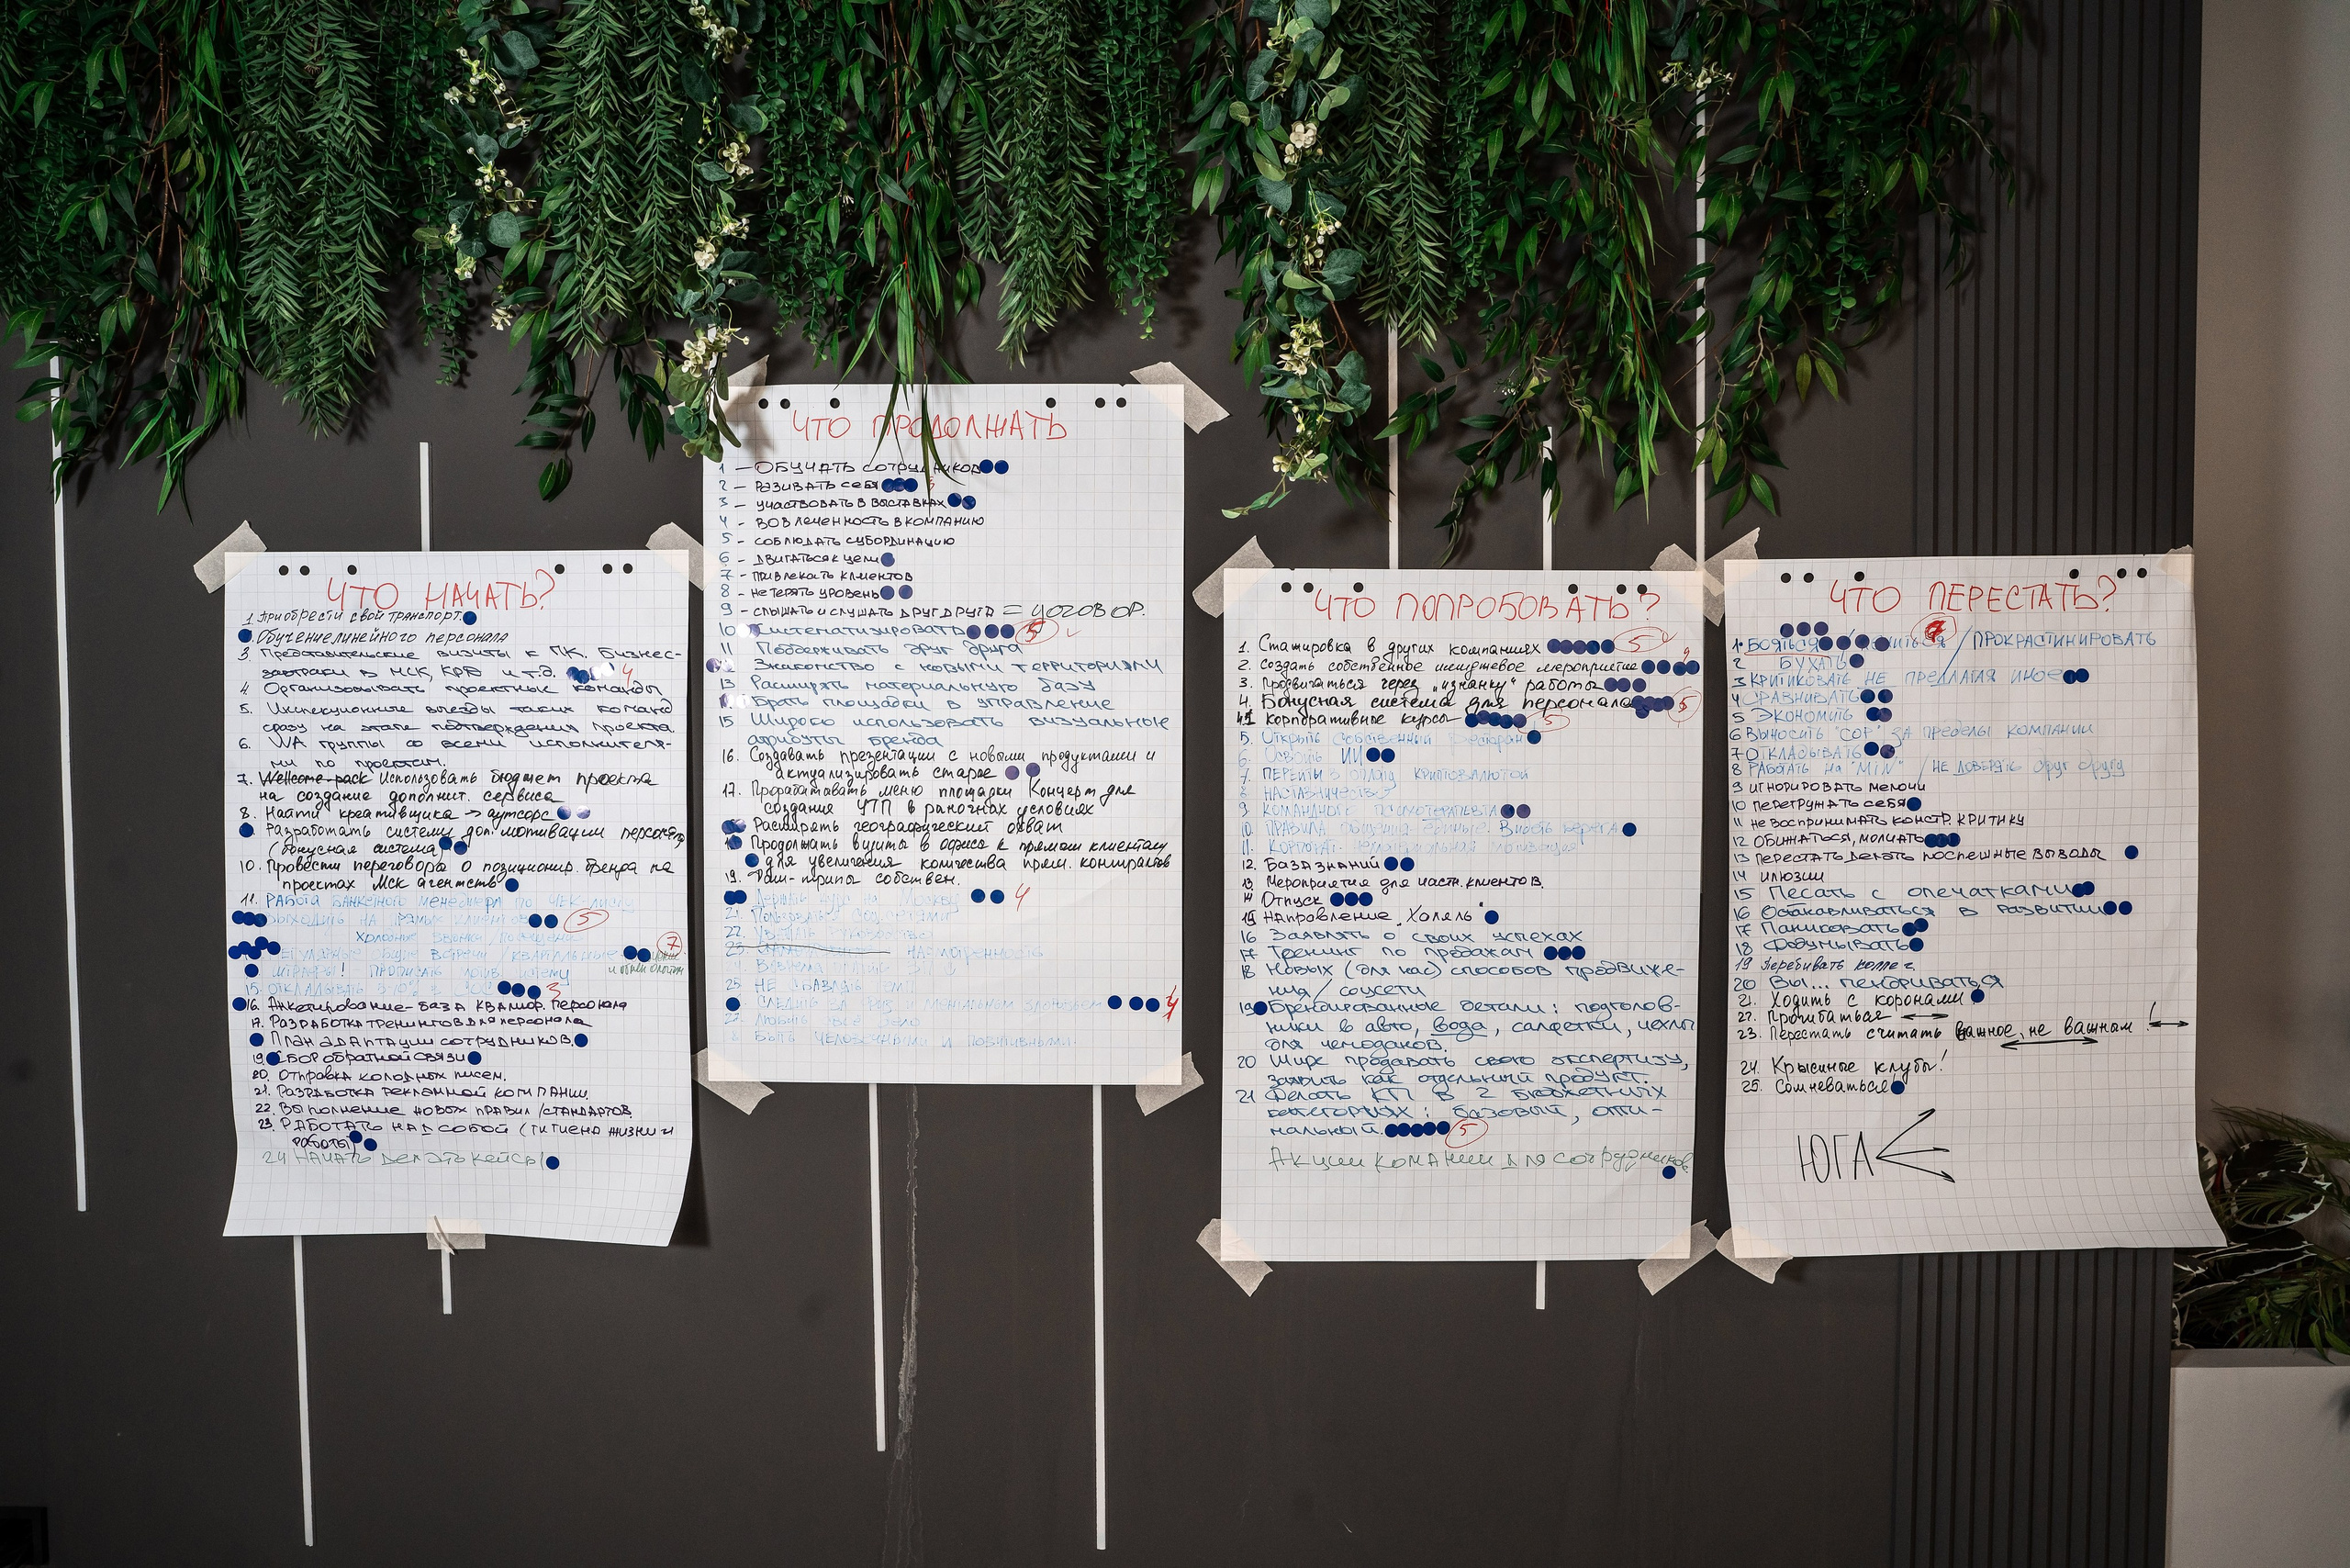 ЧТО НАЧАТЬ?
1 Приобрести свой транспорт.
Обучение линейного персонала
3. Представительские визиты к ПК. Бизнес-
завтраки в МСК, КРД и т.д. 4
4 Организовывать проектные команды
5. Инспекционные выезды таких команд
сразу на этапе подтверждения проекта.
6. WA группы со всеми исполнителя-
ми по проектам.
7. Wellcome-pack Использовать бюджет проекта
на создание дополнит. сервиса
8. Найти креативщика → аутсорс
Разработать систему доп. мотивации персонала
(бонусная система)
10. Провести переговоры о позиционир. бренда на
проектах Мск агентств
11. РАБОТА БАНКЕТНОГО МЕНЕДЖЕРА ПО ЧЕК-ЛИСТУ
ВЫХОДИТЬ НА ПРЯМЫХ КЛИЕНТОВ 5
холодные звонки /
РЕГУЛЯРНЫЕ ОБЩИЕ ВСТРЕЧИ / КВАРТАЛЬНЫЕ 7
! ПРОПИСАТЬ
15. ОТКЛАДЫВАТЬ 5-10% В 3
16. Анкетирование-база квалиф. персонала
17. РАЗРАБОТКА ТРЕНИНГОВ ДЛЯ ПЕРСОНАЛА
ПЛАН АДАПТАЦИИ СОТРУДНИКОВ.
19 СБОР ОБРАТНОЙ СВЯЗИ
20. Отправка холодных писем.
21. РАЗРАБОТКА РЕКЛАМНОЙ КОМПАНИИ.
22. ВЫПОЛНЕНИЕ НОВЫХ ПРАВИЛ /СТАНДАРТОВ
23. РАБОТАТЬ НАД СОБОЙ (ГИГИЕНА ЖИЗНИ И
РАБОТЫ)
24 НАЧАТЬ ДЕЛАТЬ КЕЙСЫ
ЧТО ПРОДОЛЖАТЬ
1 – ОБУЧАТЬ СОТРУДНИКОВ
2 – РАЗИВАТЬ СЕБЯ
3 – УЧАСТВОВАТЬ В ВЫСТАВКАХ
4 – ВОВЛЕЧЕННОСТЬ В КОМПАНИЮ
5 – СОБЛЮДАТЬ СУБОРДИНАЦИЮ
6 – ДВИГАТЬСЯ К ЦЕЛИ
7 – ПРИВЛЕКАТЬ КЛИЕНТОВ
8 – НЕ ТЕРЯТЬ УРОВЕНЬ
9 – СЛЫШАТЬ И СЛУШАТЬ ДРУГ ДРУГА = УОГОВОР.
10 Систематизировать 5
11 Поддерживать друг друга
12 Знакомство с новыми территориями
13 Расширять материальную базу
Брать площадки в управление
15 Широко использовать визуальные
атрибуты бренда
16. Создавать презентации с новыми продуктами и
актуализировать старое
17. Прорабатывать меню площадки Концерт для
создания УТП в рыночных условиях
Расширять географический охват
Продолжать визиты в офисы к прямым клиентам
для увеличения количества прям. контрактов
19. Фам-трипы собствен.
Держать курс на Москву 4
21. Пользоваться соц. сетями
22.
23. НАСМОТРЕННОСТЬ
25 НЕ СБАВЛЯТЬ ТЕМП
СЛЕДИТЬ ЗА МЕНТАЛЬНЫМ ЗДОРОВЬЕМ 4
27. ЛЮБИТЬ СВОЁ ДЕЛО
БЫТЬ ЧЕЛОВЕЧНЫМИ И ПОЗИТИВНЫМИ
ЧТО ПОПРОБОВАТЬ?
1. Стажировка в других компаниях 5
2. Создать собственное имиджевое мероприятие 4
3. Продвигаться через „изнанку“ работы
4. Бонусная система для персонала 5
4.1 Корпоративные курсы 5
5. Открыть собственный ресторан
6. Освоить ИИ
7. ПЕРЕЙТИ В ОПЛАТУ КРИПТОВАЛЮТОЙ
8 НАСТАВНИЧЕСТВО
9 КОМАНДНОГО ПСИХОТЕРАПЕВТА
10. ПРАВИЛА общения единые. Видеть берега
12. БАЗА ЗНАНИЙ
13. Мероприятие для наст. клиентов.
14 Отпуск
15 НАПРАВЛЕНИЕ „Халяль“
16 Заявлять о своих успехах
17 Тренинг по продажам
18 Новых (для нас) способов продвиже-
ния / соцсети
19 Брендированные детали: подголов-
ники в авто, вода, салфетки, чехлы
для чемоданов.
20 Шире продавать свою экспертизу,
заявить как отдельный продукт.
21 Делать КП в 2 бюджетных
категориях: базовый, опти-
мальный. 5
АКЦИИ КОМПАНИИ ДЛЯ СОТРУДНИКОВ
ЧТО ПЕРЕСТАТЬ?
7
1. БОЯТЬСЯ / ПРОКРАСТИНИРОВАТЬ
2 БУХАТЬ
3 КРИТИКОВАТЬ НЕ ПРЕДЛАГАЯ ИНОЕ
4 СРАВНИВАТЬ
5 ЭКОНОМИТЬ
6 ВЫНОСИТЬ "СОР" ЗА ПРЕДЕЛЫ КОМПАНИИ
7 ОТКЛАДЫВАТЬ
8 РАБОТАТЬ НА "MIN" / НЕ ДОВЕРЯТЬ друг другу
9 ИГНОРИРОВАТЬ МЕЛОЧИ
10 ПЕРЕГРУЖАТЬ СЕБЯ
11 НЕ ВОСПРИНИМАТЬ КОНСТР. КРИТИКУ
12 ОБИЖАТЬСЯ, МОЛЧАТЬ
13 ПЕРЕСТАТЬ ДЕЛАТЬ ПОСПЕШНЫЕ ВЫВОДЫ
14 ИЛЮЗИИ
15 Песать с опечатками
16 Останавливаться в развитии
17 Паниковать
18 Додумывать
19 Перебивать коллег
20 Вы...
21. Ходить с коронами
22.
23. Перестать считать важное, не важным!
24. Крысиные клубы!
25. Сомневаться
ЮГА